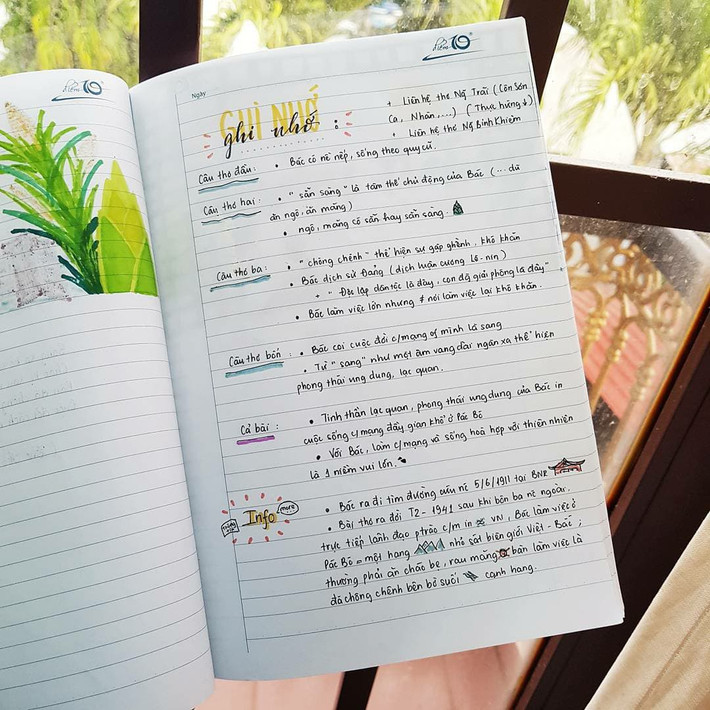 điểm 10
điểm 10
Ngày
GHI NHỚ
ghi nhớ :
+ Liên hệ thơ Ng Trãi (Côn Sơn
Ca, Nhàn,...) (Thực hứng ↓)
+ Liên hệ thơ Ng Bỉnh Khiêm
Câu thơ đầu : • Bác có nề nếp, sống theo quy củ.
Câu thơ hai : • " sẵn sàng " là tâm thế chủ động của Bác (... dù
ăn ngô, ăn măng)
• ngô, măng có sẵn hay sẵn sàng.
Câu thơ ba : • " chông chênh " thể hiện sự gập ghềnh, khó khăn
• Bác dịch sử Đảng (dịch luận cương Lê-nin)
+ " Độc lập dân tộc là đây, con đg giải phóng là đây"
• Bác làm việc lớn nhưng ≠ nói làm việc lại khó khăn.
Câu thơ bốn : • Bác coi cuộc đời c/mạng of mình là sang
• Từ " sang " như một âm vang dài ngân xa thể hiện
phong thái ung dung, lạc quan.
Cả bài : • Tinh thần lạc quan, phong thái ung dung của Bác in
cuộc sống c/mạng đầy gian khổ ở Pác Bó
• Với Bác, làm c/mạng và sống hoà hợp với thiên nhiên
là 1 niềm vui lớn.
Info
more
• Bác ra đi tìm đường cứu nc 5/6/1911 tại BNR
• Bài thơ ra đời T2 - 1941 sau khi bôn ba nc ngoài.
trực tiếp lãnh đạo ptrào c/m in VN, Bác làm việc ở
Pác Bó = một hang nhỏ sát biên giới Việt - Bắc ;
thường phải ăn cháo bẹ, rau măng bàn làm việc là
đá chông chênh bên bờ suối cạnh hang.